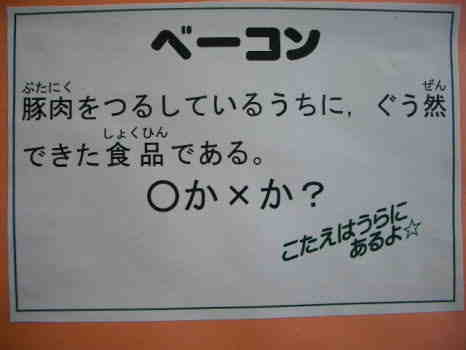 ベーコン
ぶたにく ぜん
豚肉をつるしているうちに，ぐう然
しょくひん
できた食品である。
○か×か？
こたえはうらに
あるよ☆